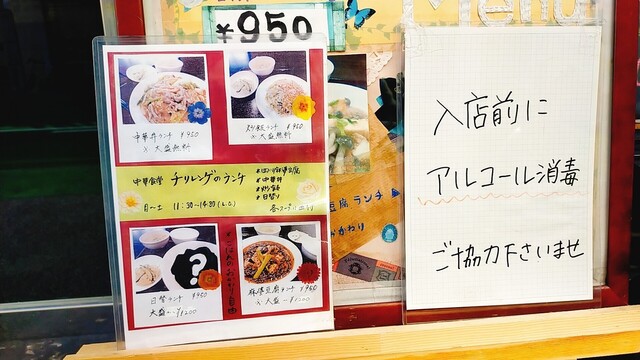 Menu
¥950
中華丼ランチ ¥950
※大盛無料
炒飯ランチ ¥950
※大盛無料
中華食堂 チリレンゲのランチ
#四川麻婆豆腐
#中華丼
#炒飯
#日替り
月〜土 11:30〜14:30(L.O)
日替ランチ ¥950
大盛〜¥1200
麻婆豆腐ランチ ¥950
※大盛〜¥1200
ごはんのおかわり自由
腐ランチ
かわり
入店前に
アルコール消毒
ご協力下さいませ